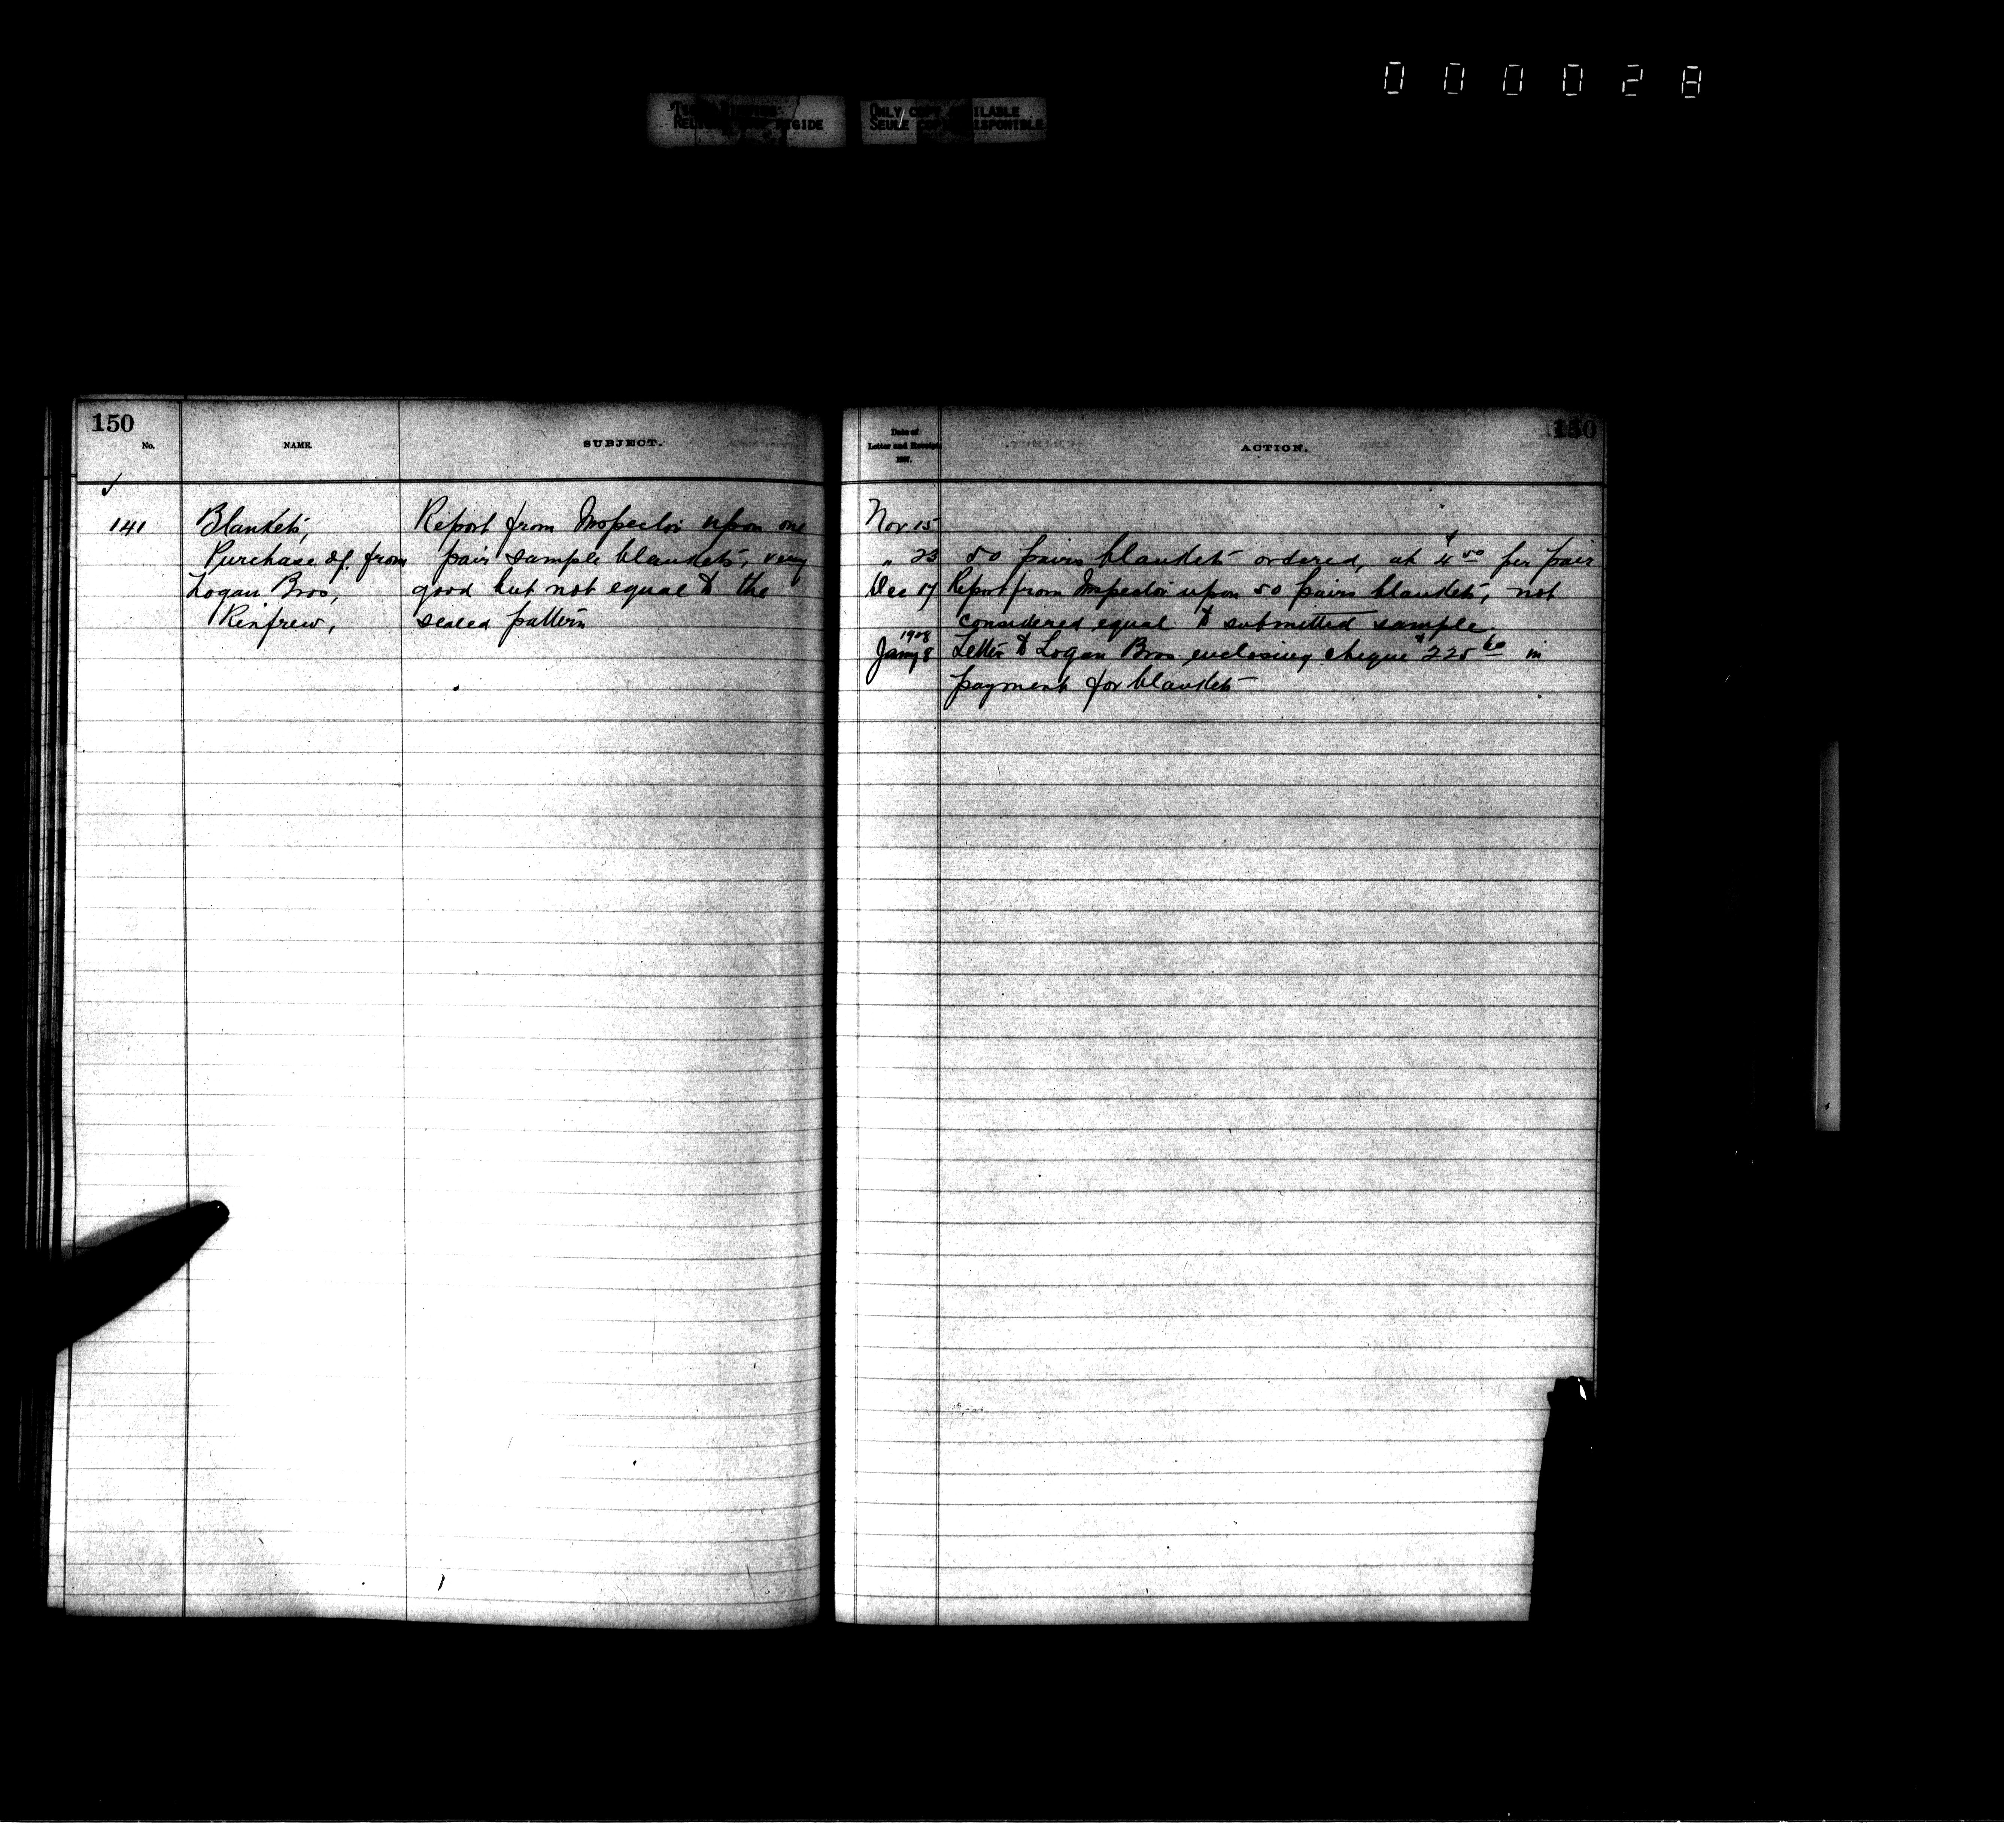 000028
REGIDE
ONLY COPY AVAILABLE
SEULE DISPONIBLE
150
No.
NAME.
SUBJECT.
✓
141
Blankets,
Purchase of from
Logan Bros,
Renfrew,
Report from Inspector upon one
pair sample blankets, very
good but not equal to the
sealed pattern
150
Date of
Letter and Receipt
ACTION.
Nov 15
" 23 50 pairs blankets ordered, at $4.50 per pair
Dec 17 Report from Inspector upon 50 pairs blankets, not
considered equal to submitted sample.
1908
Jany 8 Letter to Logan Bros. enclosing cheque $225 in
payment for blankets